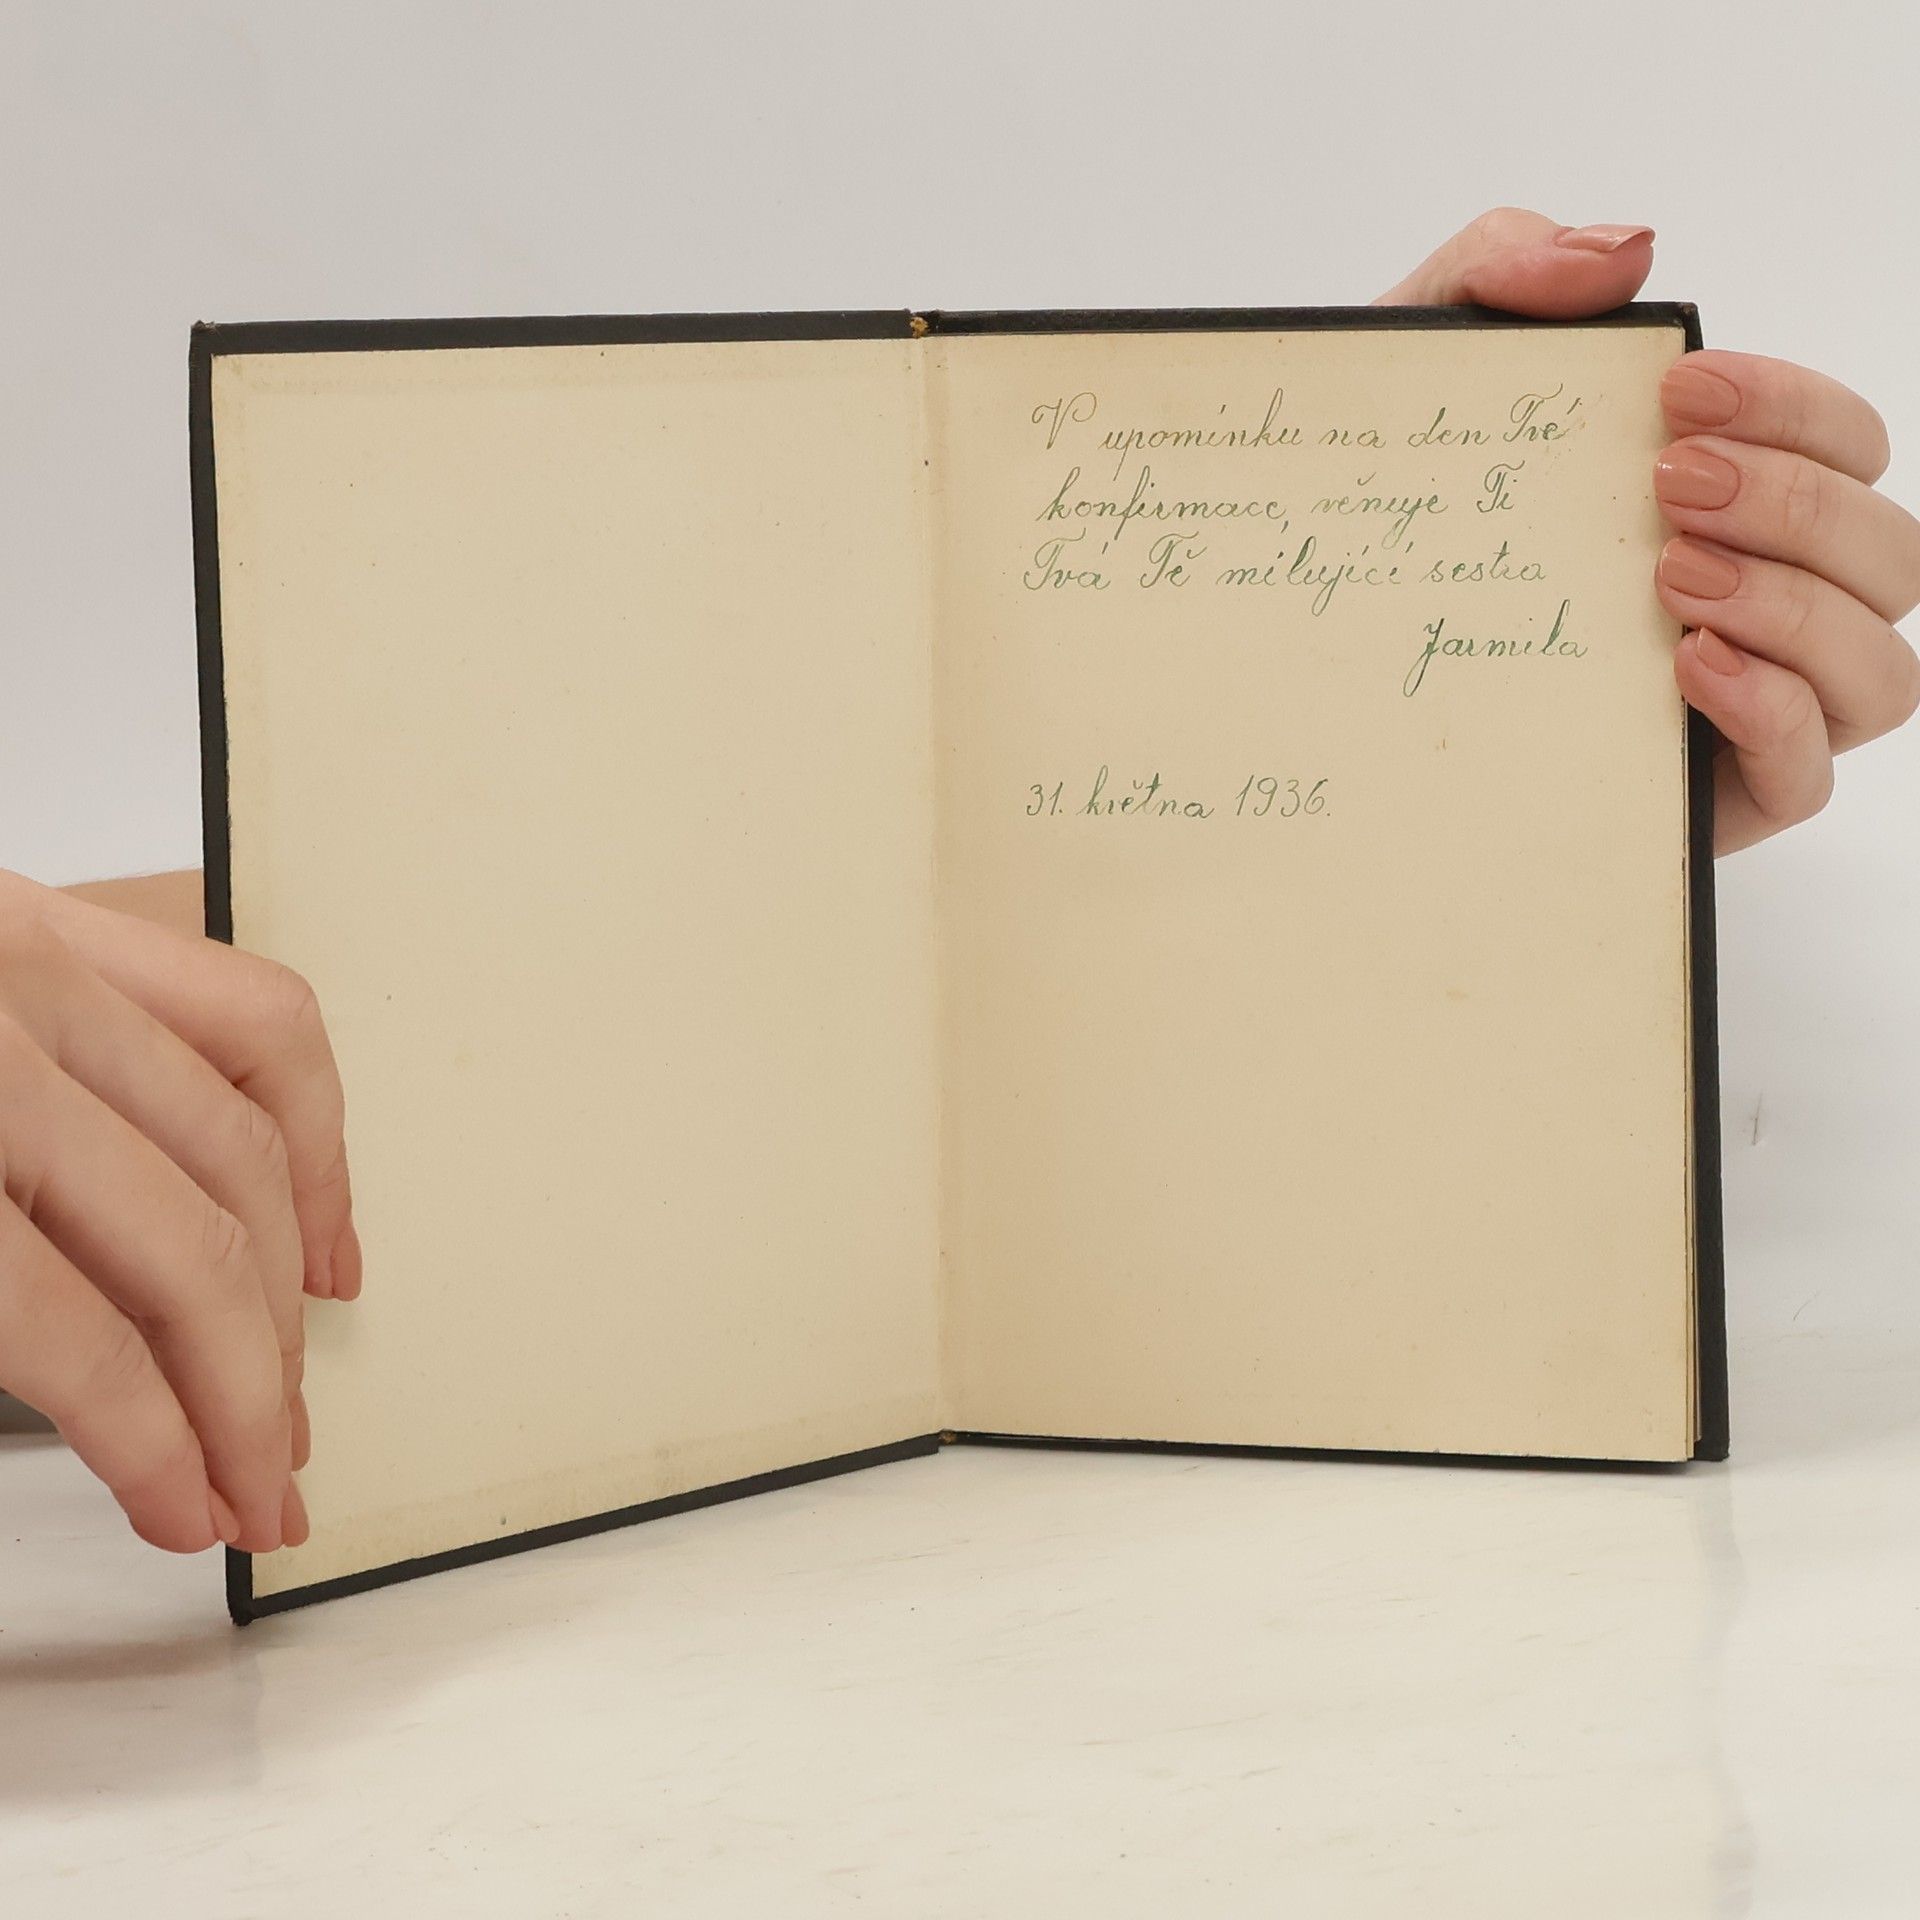 V upomínku na den Tvé
konfirmace, věnuje Ti
Tvá Tě milující sestra
Jarmila
31. května 1936.